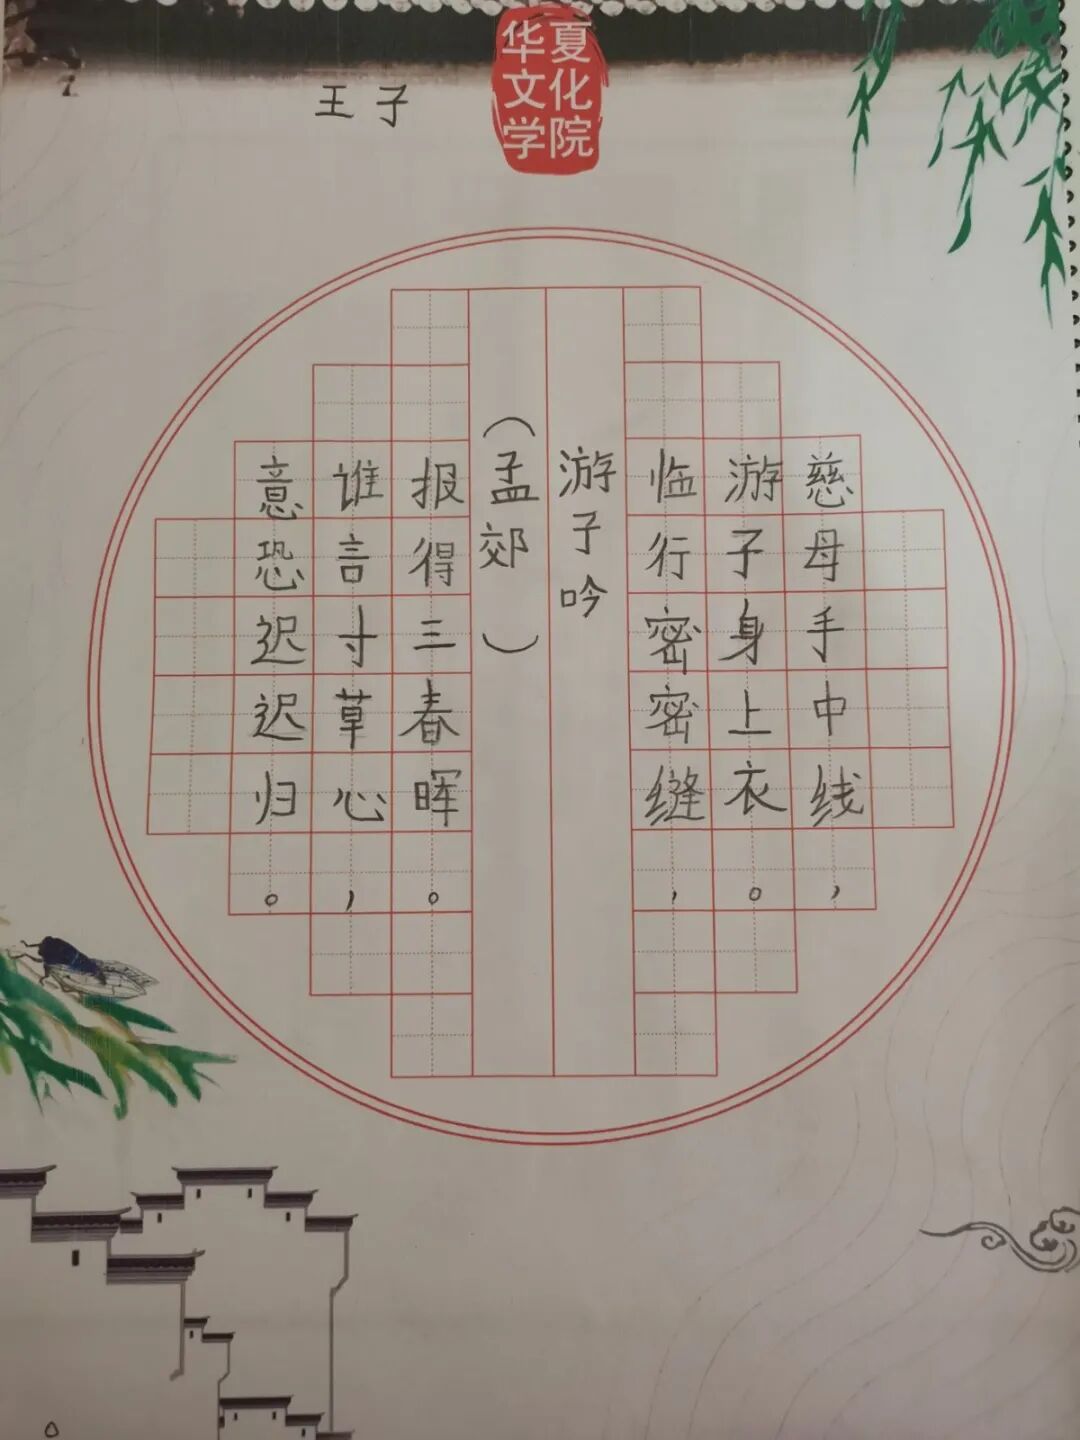 王子
华夏
文化
学院
游子吟
（孟郊）
慈母手中线，
游子身上衣。
临行密密缝，
意恐迟迟归。
谁言寸草心，
报得三春晖。